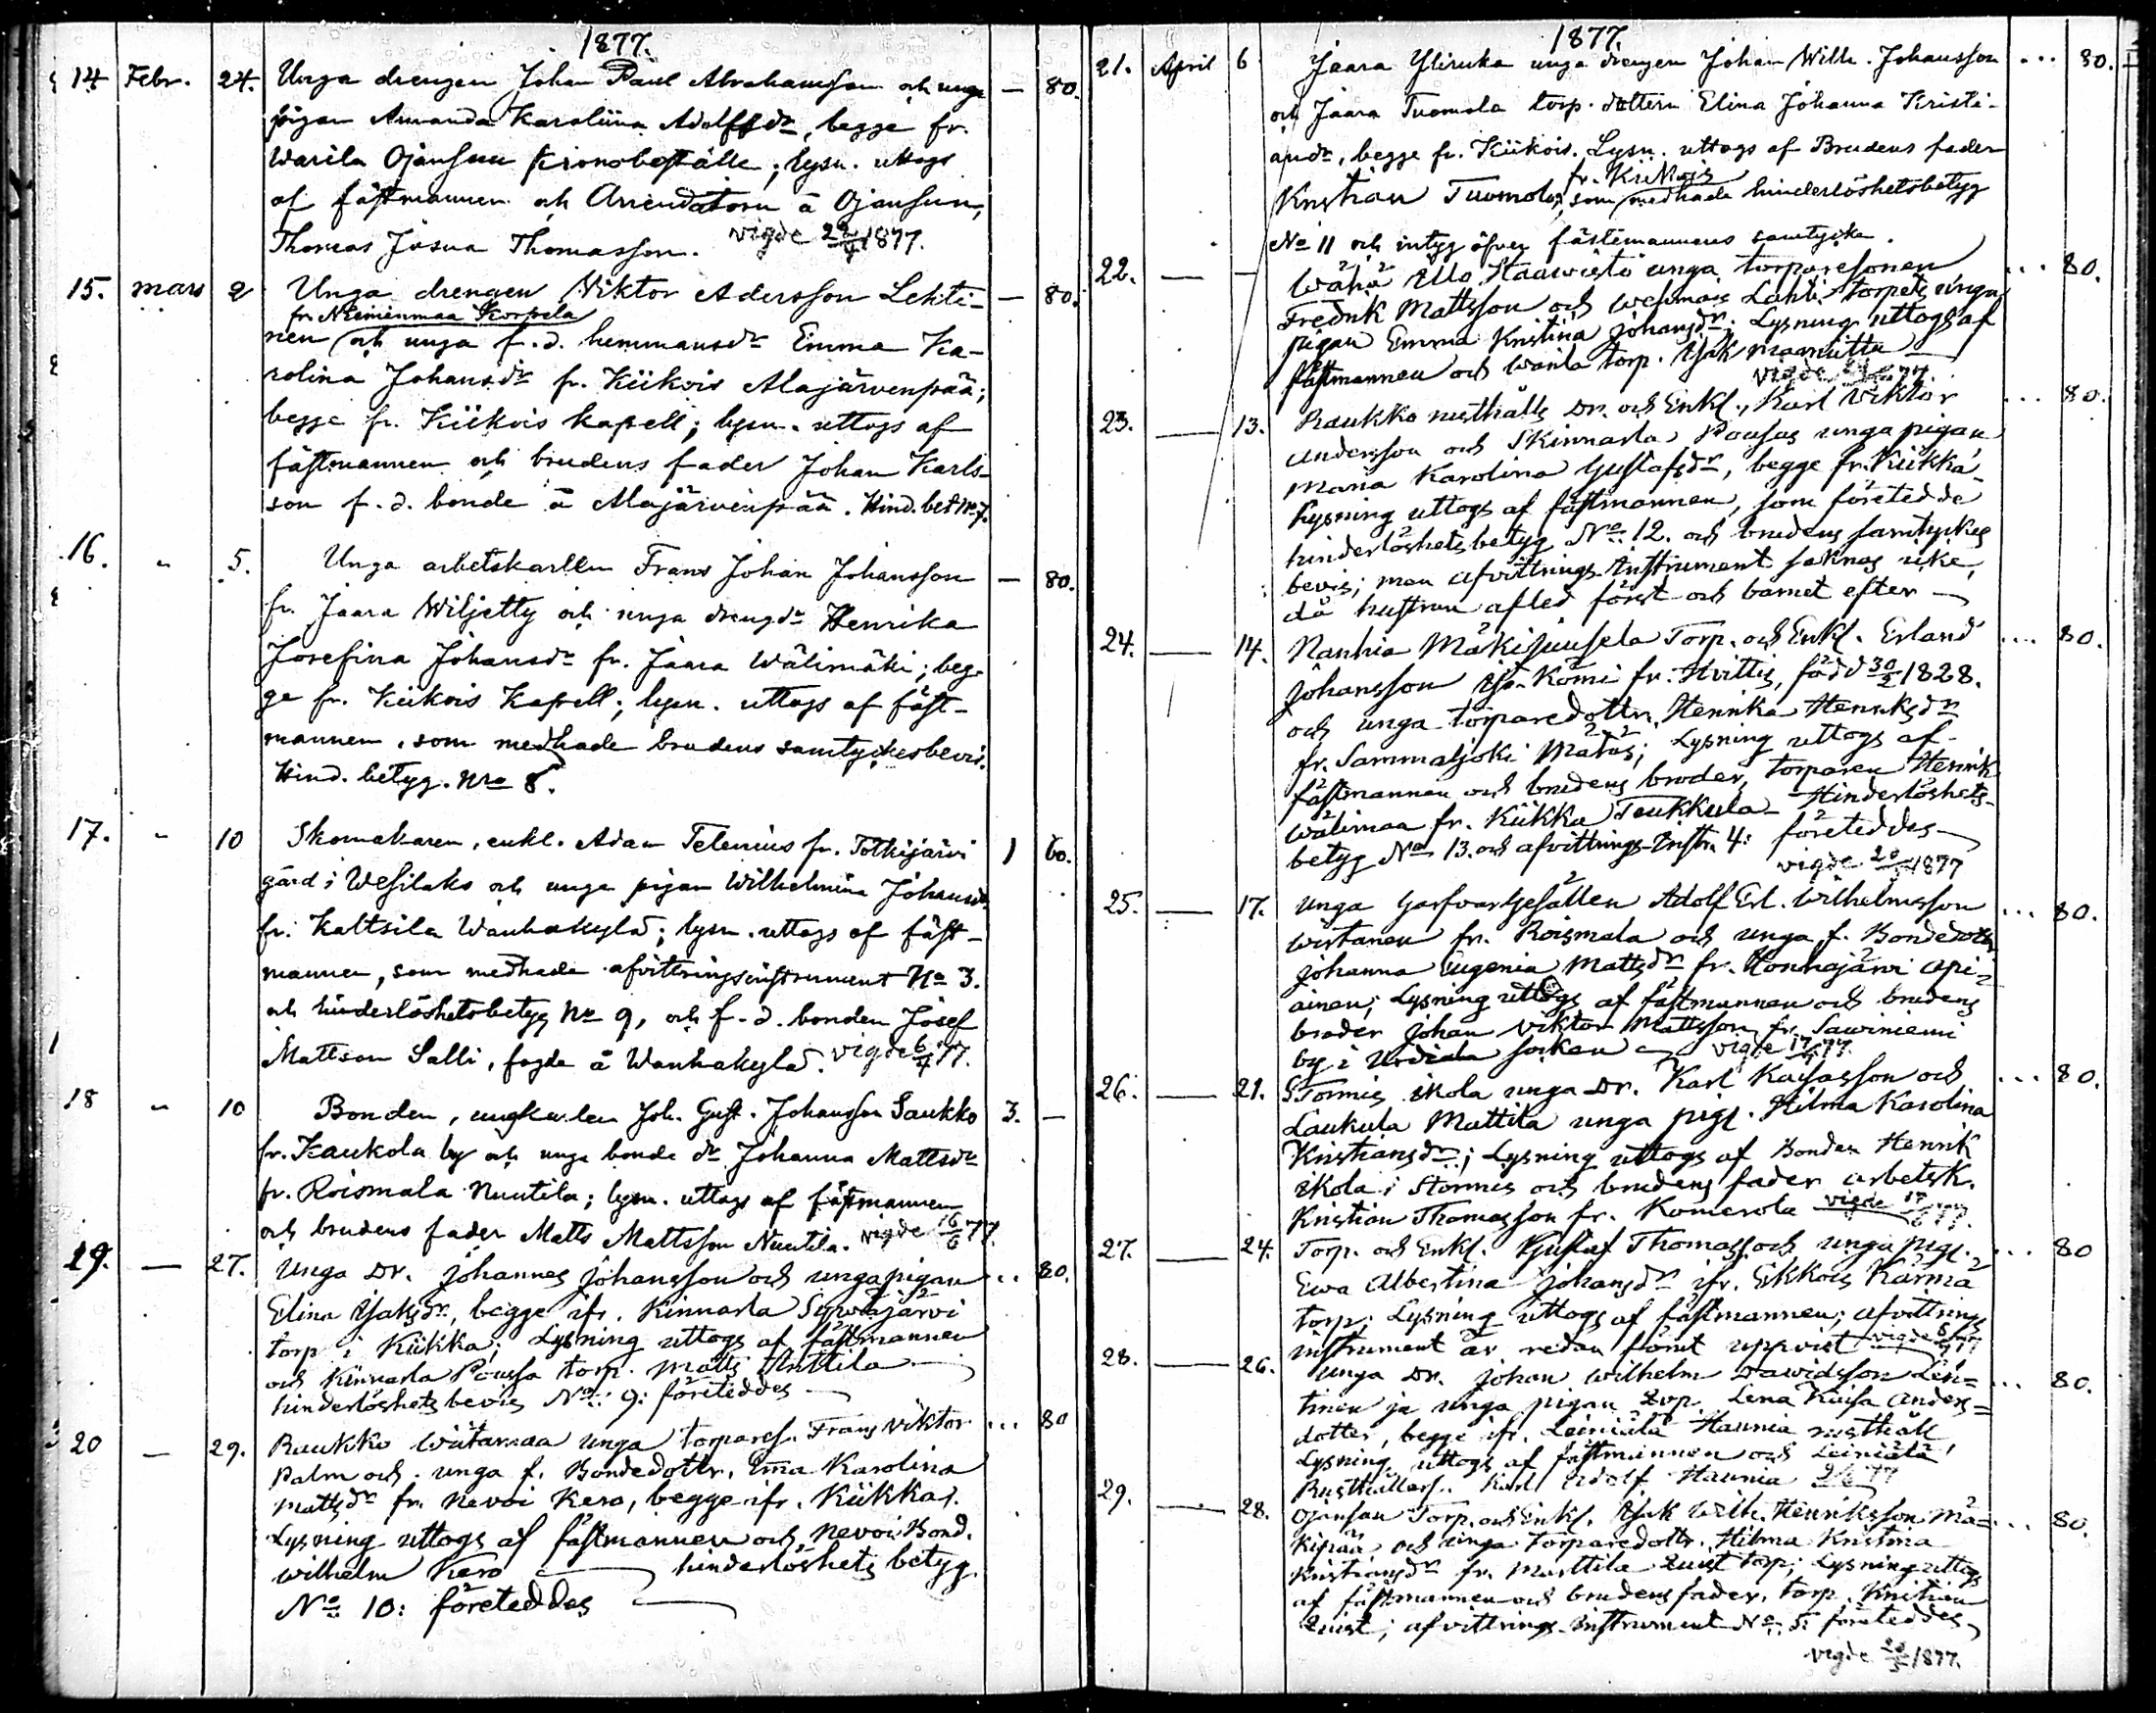 1877.
14 Febr. 24. Unga drengen Johan Paul Abrahamsson och unga — 80.
pigan Amanda Karoliina Adolfsdr, begge fr.
Warila Ojansuu Kronoboställe; lysn. uttogs
af fästmannen och Arrendatorn å Ojansuu,
Thomas Josua Thomasson. vigde 1877.
15. mars 2 Unga drengen Wiktor Adersson Lehti- — 80.
fr. Nieminmaa Korpela
nen och unga f.d. hemmansdr Emma Ka-
rolina Johansdr fr. Kiikois Alajärvenpää;
begge fr. Kiikois kapell; lysn. uttogs af
fästmannen och brudens fader Johan Karls-
son f.d. bonde å Alajärvenpää. Hind. bet No 7.
16. " 5. Unga arbetskarlen Frans Johan Johansson — 80.
fr. Jaara Wiljetty och unga drengdr Henrika
Josefina Johansdr fr. Jaara Wälimäki; beg-
ge fr. Kiikois Kapell; lysn. uttogs af fäst-
mannen, som medhade brudens samtyckesbevis.
Hind. betyg. No 8.
17. " 10 Skomakaren, enkl. Adam Telenius fr. Tottijärvi 1 60.
gård i Wesilaks och unga pigan Wilhelmina Johansdr
fr. Kaltsila Wanhakylä; lysn. uttogs af fäst-
mannen, som medhade afvittringsinstrument No 3.
och hinderlöshetsbetyg No 9, och f.d. bonden Josef
Mattson Salli, fogde å Wanhakylä. vigde 6/4 77.
18 " 10 Bonden, ungkarlen Joh. Gust. Johansson Saukko 3. —
fr. Kaukola by och unga bonde dr Johanna Mattsdr
fr. Roismala Nuutila; lysn. uttogs af fästmannen
och brudens fader Matts Mattsson Nuutila. vigde 16/6 77.
19. — 27. Unga Dr. Johannes Johansson och unga pigan .. 80.
Elina Isaksdr, begge ifr. Kinnarla Syväjärvi
torp i Kiikka; Lysning uttogs af fästmannen
och Kinnarla Poussa torp. Matts Anttila —
hinderlöshets bevis No: 9: företeddes —
20 — 29. Raukko Wiitamaa unga torpares. Frans Viktor ... 80
Palm och unga f. Bondedottr. Ema Karolina
Mattsdr fr. Nevoi Kero, begge ifr. Kiikka.
Lysning uttogs af fästmannen och Nevoi Bond.
Wilhelm Kero — hinderlöshets betyg
No: 10: företeddes —
1877.
21. April 6 Jaara Yliruka unga drengen Johan Wilh. Johansson ... 80.
och Jaara Tuomola torp. dottern Elina Johanna Kristi-
ansdr, begge fr. Kiikois. Lysn. uttogs af Brudens fader
fr. Kiikois
Kristian Tuomola, som medhade hinderlöshetsbetyg
No 11 och intyg öfver fästemannens samtycke.
22. — — Wähä Ullo Haawisto unga torparesonen ... 80.
Fredrik Mattsson och Wesimais Lahti torpets unga
pigan Emma Kristina Johansdr; Lysning uttogs af
fästmannen och Warila torp. Isak —
vigde 77.
23. — 13. Raukko rusthålls Dr. och Enkl., Karl Viktor ... 80.
Andersson och Kinnarla Pousas unga pigan
Maria Karolina Gustafsdr, begge fr. Kiikka
Lysning uttogs af fästmannen, som företedde
hinderlöshets betyg No: 12. och brudens samtyckes
bevis; men afvittrings Instrument saknas icke,
då hustrun afled först och barnet efter —
24. — 14. Nanhia Mäkijuusela Torp. och Enkl. Erland ... 80.
Johansson fr. Hvittis, född 30/2 1828.
och unga torparedottr. Henrika Henriksdr
fr. Sammaljoki; Lysning uttogs af
fästmannen och brudens broder, torparen Henrik
Wälimaa fr. Kiikka Teukkula — Hinderlöshets-
betyg No 13. och afvittrings-Instr. 4: företeddes —
vigde 1877
25. — 17. Unga Garfvargesällen Adolf Erl. Wilhelmsson ... 80.
Wirtanen fr. Roismala och unga f. Bondedottr
Johanna Eugenia Mattsdr fr. Honnajärvi Api=
ainen; Lysning uttogs af fästmannen och brudens
broder Johan Viktor Mattsson fr. Sawiniemi
by i Urdiala socken — vigde 77.
26. — 21. Stormis Ikola unga Dr. Karl Kaijasson och ... 80.
Laukula Mattila unga pig. Hilma Karolina
Kristiansdr; Lysning uttogs af Bonden Henrik
Ikola i Stormis och brudens fader arbetsk.
Kristian Thomasson fr. Komerola vigde 17/6 77.
27. — 24. Torp. och Enkl. Gustaf Thomass. och unga pig. ... 80
Ewa Albertina Johansdr ifr. Ekkois Kärmä
torp; Lysning uttogs af fästmannen; afvittrings
instrument är redan förut uppvist vigde 77
28. — 26. Unga Dr. Johan Wilhelm Dawidsson Lin= ... 80.
tinen ja unga pigan Lena Kaisa Anders=
dotter, begge ifr. Leiniälä Hannia rusthåll
Lysning uttogs af fästmannen och Leiniälä
Rusthållars. Karl Adolf Hannia 77
29. — 28. Ojansuu Torp. och Enkl. Isak Wilh. Henriksson Mä= ... 80.
kipää och unga Torparedottr. Hilma Kristina
Kristiansdr fr. Marttila torp; Lysning uttogs
af fästmannen och brudens fader, torp. Kristian
; afvittrings-Instrument No: 5: företeddes —
vigde 1877.